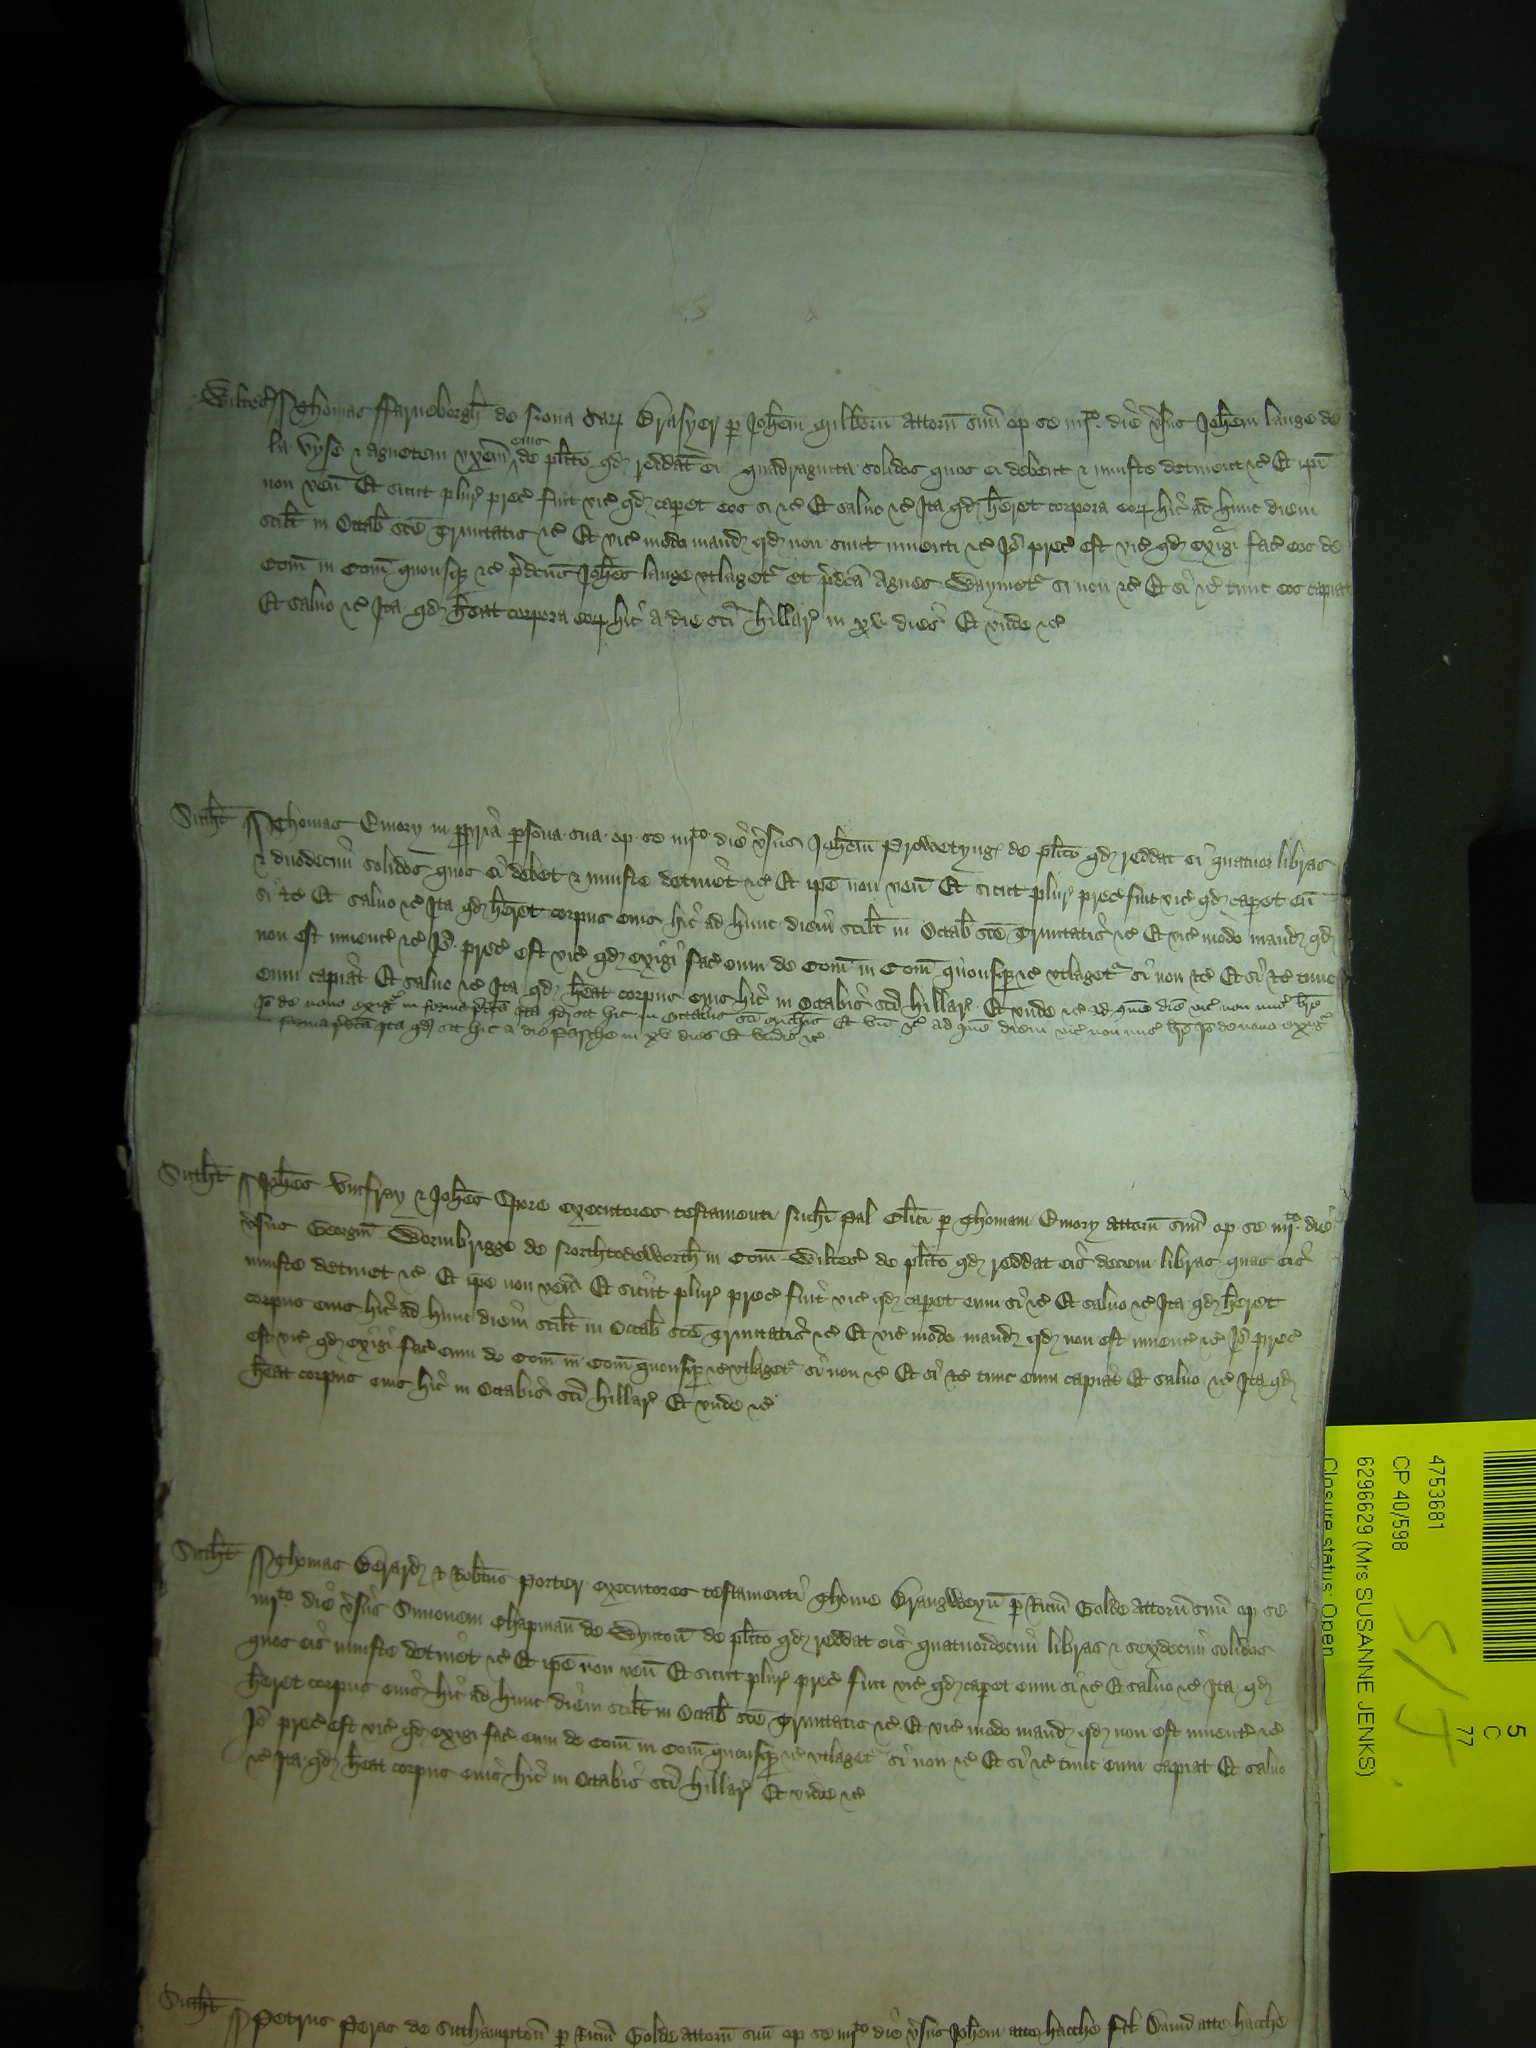 Wiltes̄ Thomas ffarneborgh de Noua Sar̄ Grasyer p̱ Joh̄em Gilberū attorn̄ suū op se iiijº die v̄sus Joh̄em lange de
la Vyse ⁊ Agnetem vx̄em eius de pl̄ito qd̄ reddat ei quadraginta solidos quos ei debent ⁊ iniuste detinent ⁊c̄ Et ip̄i
non ven̄ Et sicut plur̄ prec̄ fuit vic̄ qd̄ caperet eos si ⁊c̄ Et saluo ⁊c̄ Ita qd̄ h̄eret corpora eoꝝ hic ad hunc diem
scil̄t in Octab̄ sc̄e Trinitatis ⁊c̄ Et vic̄ modo mand̄ qd̄ non sunt inuenti ⁊c̄ Jō prec̄ est vic̄ qd̄ exigi fac̄ eos de
Com̄ in Com̄ quousq̄ ⁊c̄ p̄dc̄us Joh̄es lange vtlaget̄ et p̄dc̄a Agnes Wayuiet̄ si non ⁊c̄ Et si ⁊c̄ tunc eos capiat
Et saluo ⁊c̄ Ita qd̄ h̄eat corpora eoꝝ hic a die sc̄i hillar̄ in xv dies Et vnde ⁊c̄
Suth̄t Thomas Emory in p̱pria p̱sona sua op se iiijto die v̄sus Joh̄em Prowetyng de pl̄ito qd̄ reddat ei quatuor libras
⁊ duodecim solidos quos ei debet ⁊ iniuste detinet ⁊c̄ Et ip̄e non ven̄ Et sicut plur̄ prec̄ fuit vic̄ qd̄ caperet eū
si ⁊c̄ Et saluo ⁊c̄ Ita qd̄ h̄eret corpus eius hic ad hunc diem scil̄t in Octab̄ sc̄e Trinitatis ⁊c̄ Et vic̄ modo mand̄ qd̄
non est inuent̄ ⁊c̄ Jō prec̄ est vic̄ qd̄ exigi fac̄ eum de Com̄ in Com̄ quousq̄ ⁊c̄ vtlaget̄ si non ⁊c̄ Et si ⁊c̄ tunc
eum capiat Et saluo ⁊c̄ Ita qd̄ h̄eat corpus eius hic in Octabis sc̄i hillar̄ Et vnde ⁊c̄ ad quē diē vic̄ non mis̄ br̄e
Jō de nouo exigr̄ in forma p̄dc̄a Ita qd̄ sit hic in Octabis sc̄i Mich̄is Et vn̄ ⁊c̄ ad quē diem vic̄ non mis̄ br̄e Jō de nouo exigr̄
in forma p̄dc̄a Ita qd̄ sit hic a die Pasche in xv dies Et vnde ⁊c̄
Suth̄t Joh̄es Vmfray ⁊ Joh̄es Spore executores testamenti Nich̄i Pal Cl̄ici p̱ Thomam Emory attorn̄ suū op se iiijto die
v̄sus Georgiū Wormbrigge de Northtodeworth in Com̄ Wiltes̄ de pl̄ito qd̄ reddat eis decem libras quas eis
iniuste detinet ⁊c̄ Et ip̄e non ven̄ Et sicut plur̄ prec̄ fuit vic̄ qd̄ caperet eum si ⁊c̄ Et saluo ⁊c̄ Ita qd̄ h̄eret
corpus eius hic ad hunc diem scil̄t in Octab̄ sc̄e Trinitatis ⁊c̄ Et vic̄ modo mand̄ qd̄ non est inuent̄ ⁊c̄ Jō prec̄
est vic̄ qd̄ exigi fac̄ eum de Com̄ in Com̄ quousq̄ ⁊c̄ vtlaget̄ si non ⁊c̄ Et si ⁊c̄ tunc eum capiat Et saluo ⁊c̄ Ita qd̄
h̄eat corpus eius hic in Octabis sc̄i hillar̄ Et vnde ⁊c̄
Suth̄t Thomas Gerard ⁊ Rob̄tus Porter executores testamenti Thome Brangweyn p̱ Ric̄m Golde attorn̄ suū op se
iiijto die v̄sus Simonem Chapman de Wynton̄ de pl̄ito qd̄ reddat eis quatuordecim libras ⁊ sexdecim solidos
quos eis iniuste detinet ⁊c̄ Et ip̄e non ven̄ Et sicut plur̄ prec̄ fuit vic̄ qd̄ caperet eum si ⁊c̄ Et saluo ⁊c̄ Ita qd̄
h̄eret corpus eius hic ad hunc diem scil̄t in Octab̄ sc̄e Trinitatis ⁊c̄ Et vic̄ modo mand̄ qd̄ non est inuent̄ ⁊c̄
Jō prec̄ est vic̄ qd̄ exigi fac̄ eum de Com̄ in Com̄ quousq̄ ⁊c̄ vtlaget̄ si non ⁊c̄ Et si ⁊c̄ tunc eum capiat Et saluo
⁊c̄ Ita qd̄ h̄eat corpus eius hic in Octabis sc̄i hillar̄ Et vnde ⁊c̄
Suth̄t Petrus Peras de Suthampton̄ p̱ Ric̄m Golde attorn̄ suū op se iiijto die v̄sus Joh̄em atte hacche fil̄ Dauid atte hacche
4753681
CP 40/598
6296629 (Mrs SUSANNE JENKS)
Closure status: Open
5
C
77
S/J